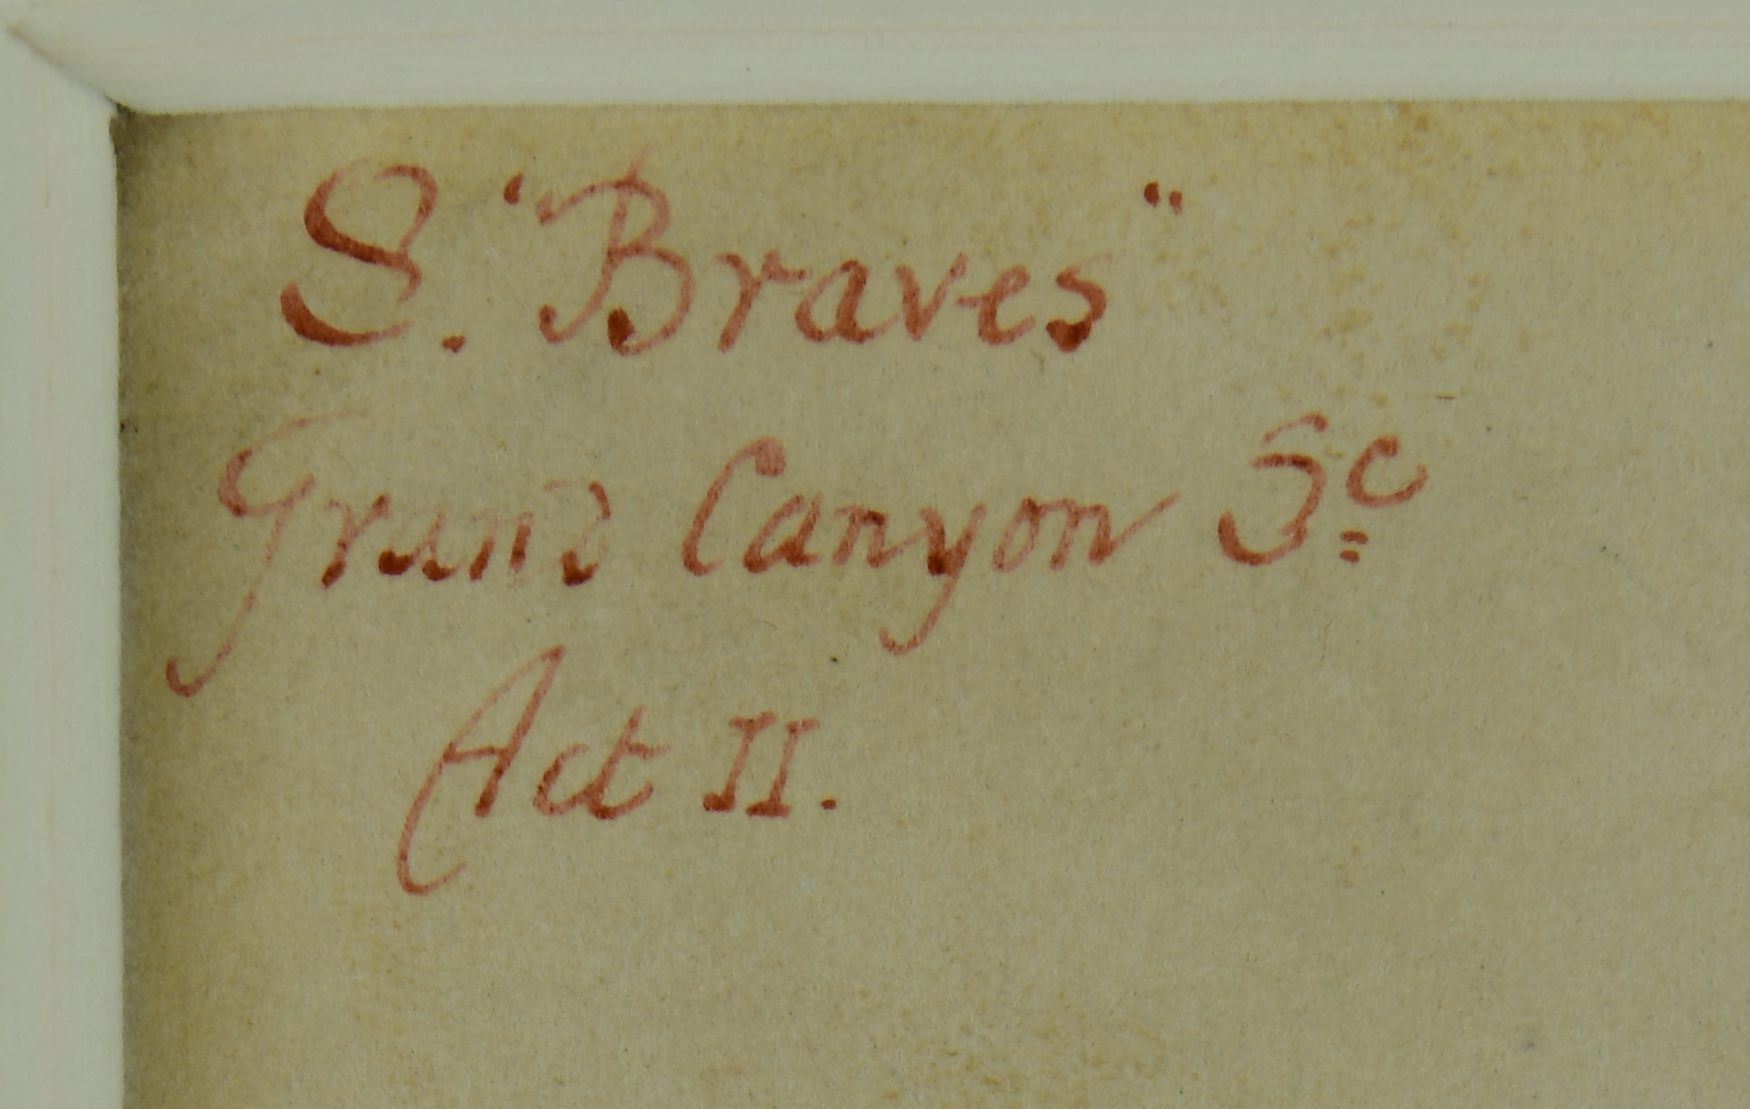 8. "Braves"
Grand Canyon Sc
Act II.